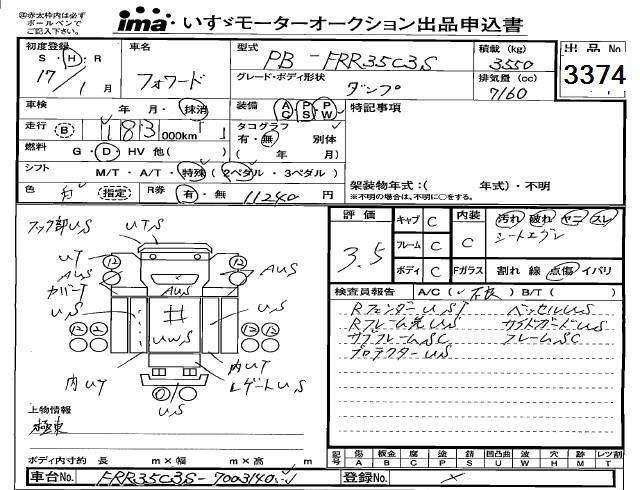 ㊟赤太枠内は必ず
ボールペンで
ご記入下さい。
ima いすゞモーターオークション出品申込書
初度登録 S・H・R 17/1月
車名 フォワード
型式 PB-FRR35C3S
積載 (kg) 3550
出品No 3374
グレード・ボディ形状 ダンプ
排気量 (cc) 7160
車検 年 月・抹消
装備 AC PS PW
特記事項
走行 B 183 000km
タコグラフ 有・無 別体
( 年 月)
燃料 G・D・HV 他( )
シフト M/T・A/T・特殊(2ペダル・3ペダル)
架装物年式:( 年式)・不明
※不明の場合は、不明に○をする。
色 (指定) R券 有・無 11240円
フック部US UTS
UT
AUS
カバーT
US
AUS
US
UWS
内UT
内UT
レゲートUS
US
評価 3.5
キャブ C
フレーム C
ボディ C
内装 C
Fガラス
汚れ 破れ ヤニ スレ
シートエグレ
割れ 線 点傷 イパリ
検査員報告 A/C( ) B/T( )
RフェンダーUST ベッセルUS
Rフレーム先US サイドガードUS
サブフレームSC フレームSC
プロテクターUS
上物情報
極東
ボディ内寸約 長 m×幅 m×高 m
記号 傷 A 板金 B 腐 C 塗 P 錆 S 凹凸曲 U 波 W 穴 H 跡 M レツ割 T
車台No. FRR35C3S-7003140
登録No. ×